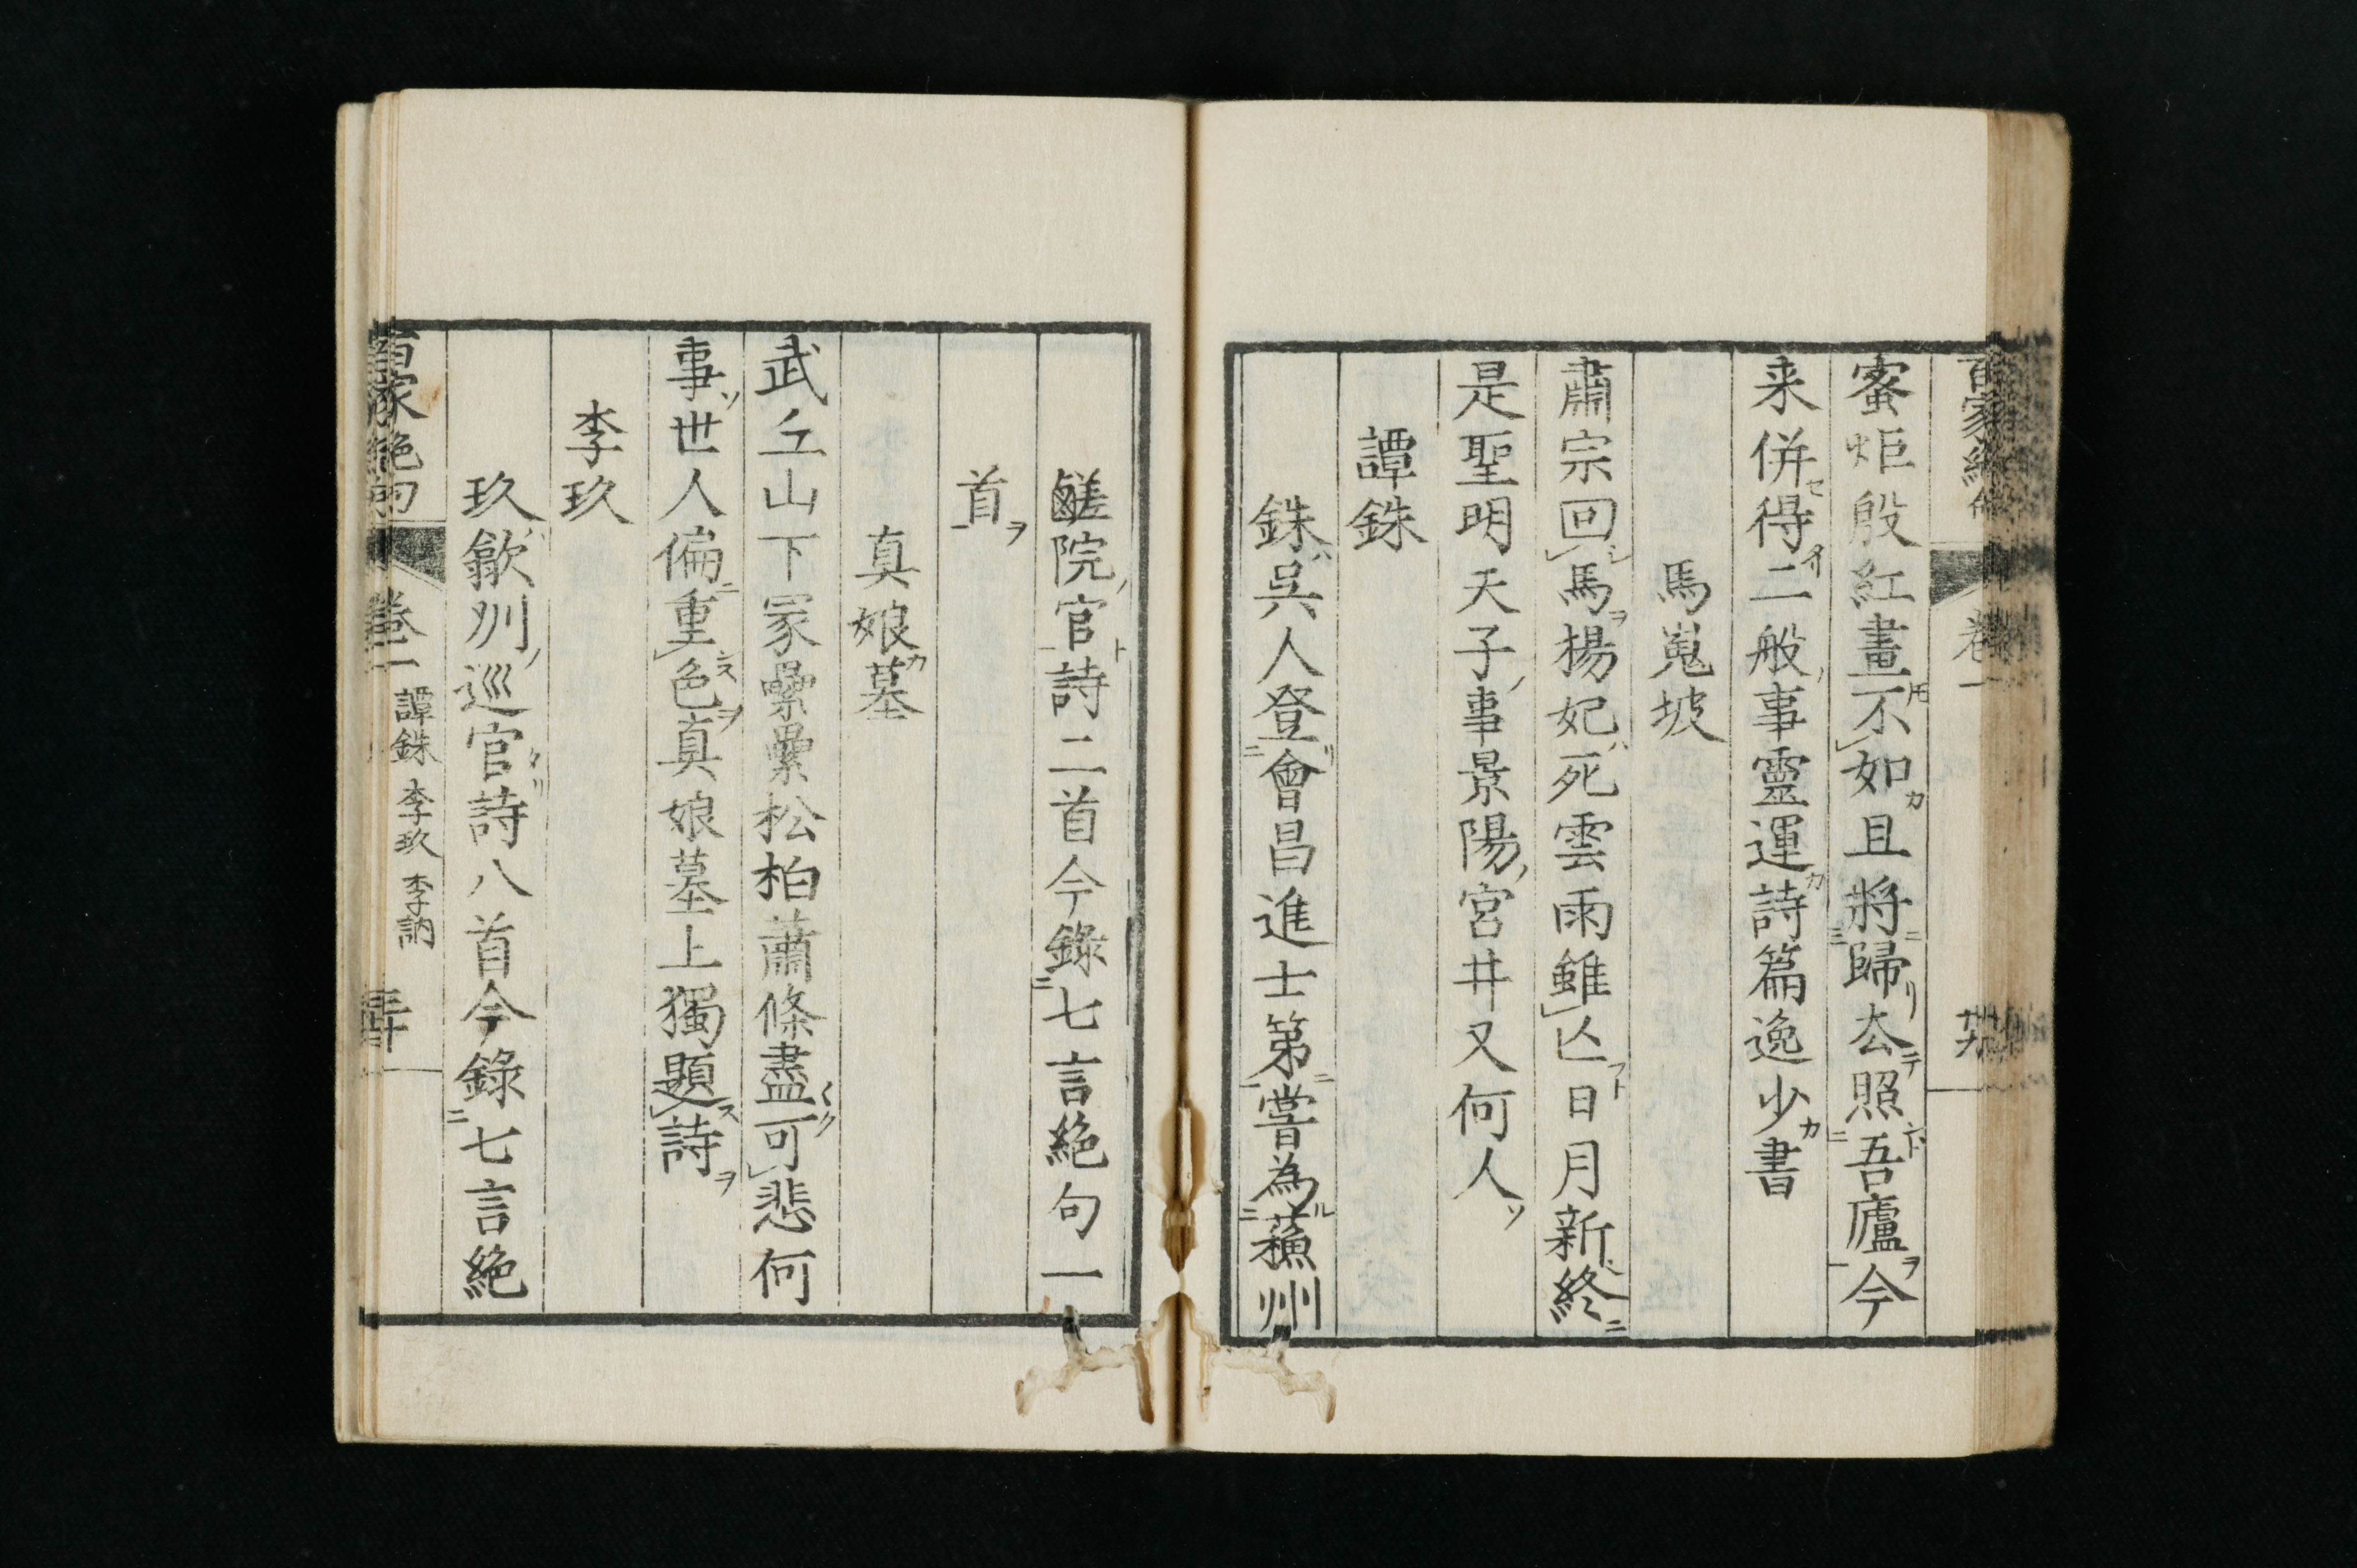 百家絶句 卷一 廿九
蜜炬殷紅畫不如且將歸去照吾廬今
来併得二般事靈運詩篇逸少書
馬嵬坡
肅宗回馬楊妃死雲雨雖亡日月新終
是聖明天子事景陽宮井又何人
譚銖
銖吳人登會昌進士第嘗為蘇州
鹺院官詩二首今錄七言絶句一
首
真娘墓
武丘山下冢纍纍松柏蕭條盡可悲何
事世人偏重色真娘墓上獨題詩
李玖
玖歙州巡官詩八首今錄七言絶
百家絶句 卷一 譚銖 李玖 李訥 三十